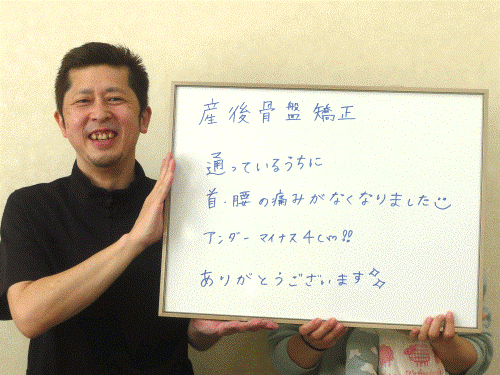 産後骨盤矯正
通っているうちに
首・腰の痛みがなくなりました☺
アンダーマイナス4cm!!
ありがとうございます✨